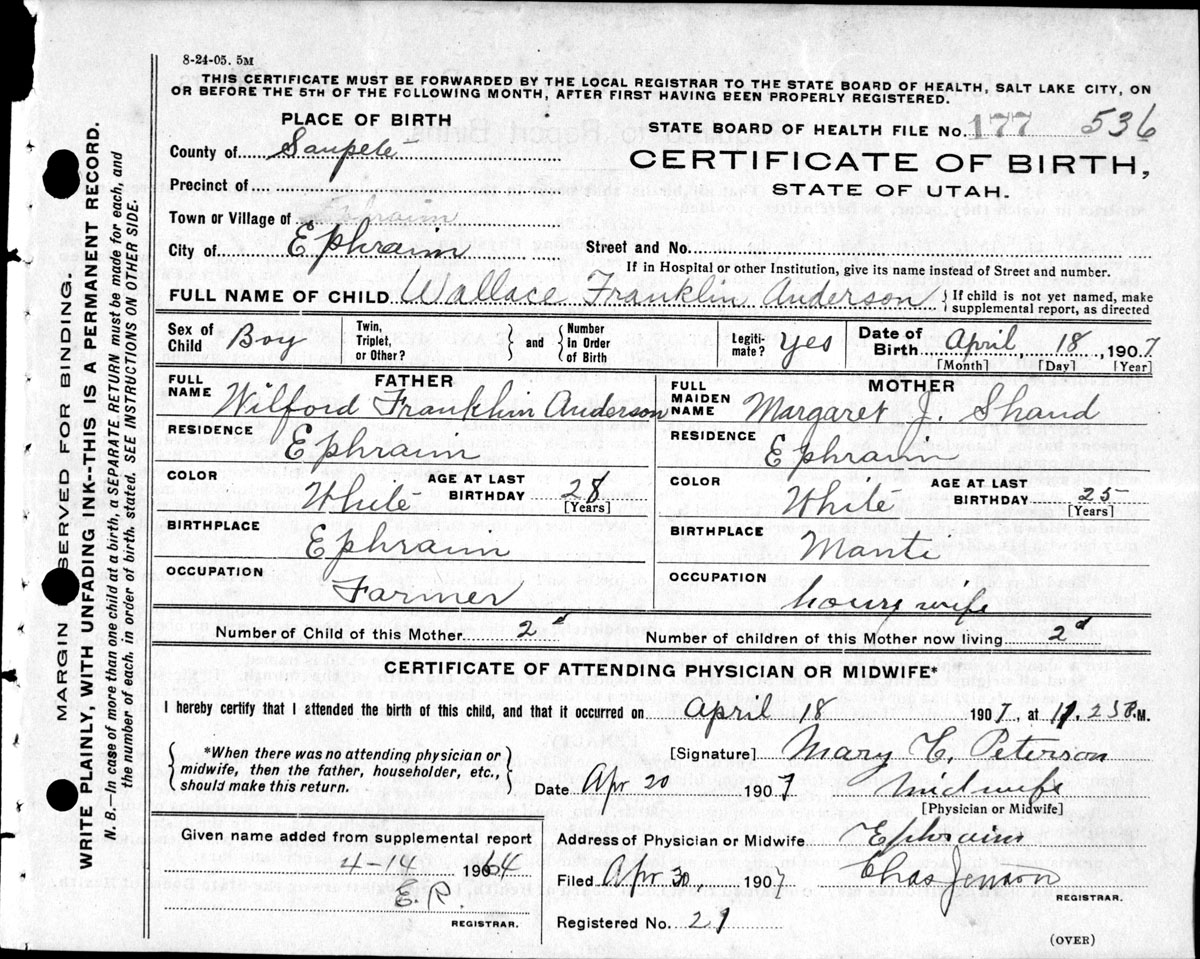 8-24-05. 5M
THIS CERTIFICATE MUST BE FORWARDED BY THE LOCAL REGISTRAR TO THE STATE BOARD OF HEALTH, SALT LAKE CITY, ON
OR BEFORE THE 5TH OF THE FOLLOWING MONTH, AFTER FIRST HAVING BEEN PROPERLY REGISTERED.
PLACE OF BIRTH
STATE BOARD OF HEALTH FILE No. 177 536
County of Sanpete
CERTIFICATE OF BIRTH,
Precinct of
STATE OF UTAH.
Town or Village of Ephraim
City of Ephraim Street and No.
If in Hospital or other Institution, give its name instead of Street and number.
FULL NAME OF CHILD Wallace Franklin Anderson } If child is not yet named, make
supplemental report, as directed
Sex of Child Boy Twin, Triplet, or Other? } and { Number in Order of Birth Legiti- mate? yes Date of Birth April 18, 1907
[Month] [Day] [Year]
FATHER
FULL NAME Wilford Franklin Anderson
RESIDENCE Ephraim
COLOR White AGE AT LAST BIRTHDAY 28
[Years]
BIRTHPLACE Ephraim
OCCUPATION Farmer
MOTHER
FULL MAIDEN NAME Margaret J. Shand
RESIDENCE Ephraim
COLOR White AGE AT LAST BIRTHDAY 25
[Years]
BIRTHPLACE Manti
OCCUPATION house wife
Number of Child of this Mother 2d Number of children of this Mother now living 2d
CERTIFICATE OF ATTENDING PHYSICIAN OR MIDWIFE*
I hereby certify that I attended the birth of this child, and that it occurred on April 18 1907, at 11.25 P.M.
{ *When there was no attending physician or
midwife, then the father, householder, etc.,
should make this return. }
[Signature] Mary C. Peterson
Date Apr 20 1907 Midwife
[Physician or Midwife]
Given name added from supplemental report
4-14 1964
E.R.
REGISTRAR.
Address of Physician or Midwife Ephraim
Filed Apr 30, 1907 Chas Jenson
REGISTRAR.
Registered No. 29
(OVER)
MARGIN RESERVED FOR BINDING.
WRITE PLAINLY, WITH UNFADING INK--THIS IS A PERMANENT RECORD.
N. B.--In case of more than one child at a birth, a SEPARATE RETURN must be made for each, and
the number of each, in order of birth, stated. SEE INSTRUCTIONS ON OTHER SIDE.